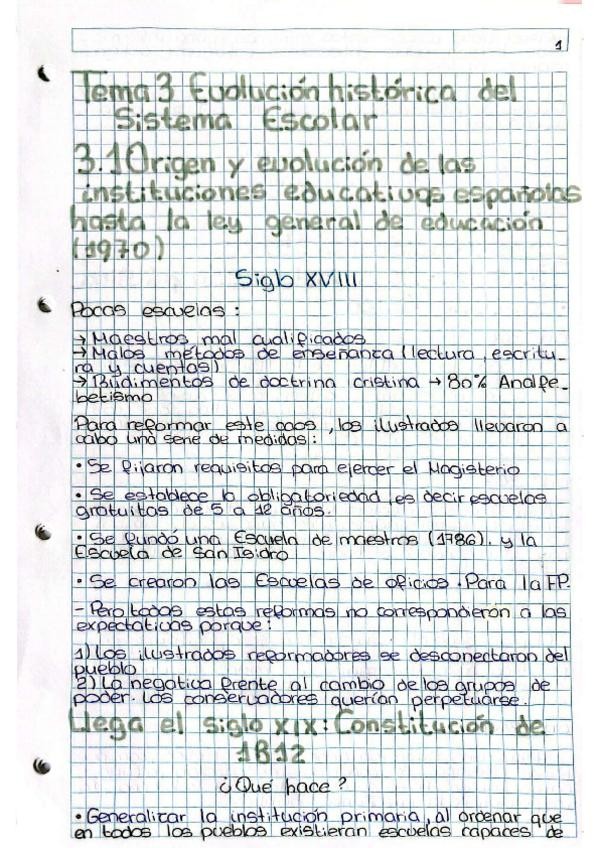 1
Tema 3 Evolución histórica del
Sistema Escolar
3.1 Origen y evolución de las
instituciones educativas españolas
hasta la ley general de educación
(1970)
Siglo XVIII
Pocas escuelas :
→ Maestros mal cualificados
→ Malos métodos de enseñanza (lectura, escritu-
ra y cuentas)
→ Rudimentos de doctrina cristina → 80% Analfa-
betismo
Para reformar este caos, los ilustrados llevaron a
cabo una serie de medidas :
• Se fijaron requisitos para ejercer el Magisterio
• Se establece la obligatoriedad, es decir escuelas
gratuitas de 5 a 12 años.
• Se fundó una Escuela de maestros (1786). y la
Escuela de San Isidro
• Se crearon las Escuelas de oficios. Para la FP.
- Pero todas estas reformas no correspondieron a las
expectativas porque :
1) Los ilustrados reformadores se desconectaron del
pueblo
2) La negativa frente al cambio de los grupos de
poder. Los conservadores querían perpetuarse.
Llega el siglo XIX: Constitución de
1812
¿Qué hace?
• Generalizar la institución primaria, al ordenar que
en todos los pueblos existieran escuelas capaces de